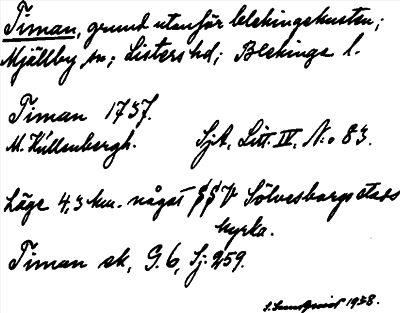 Timan, grund utanför blekingekusten;
Mjällby sn; Listers hd; Blekinge l.
Timan 1737.
M. Küllenbergh. SjA, Litt. IV, N:o 83.
Läge 4,3 km. något SSV Sölvesborgs stads
kyrka.
Timan sk, G. 6, Sj: 259.
S. Lundqvist 1938.